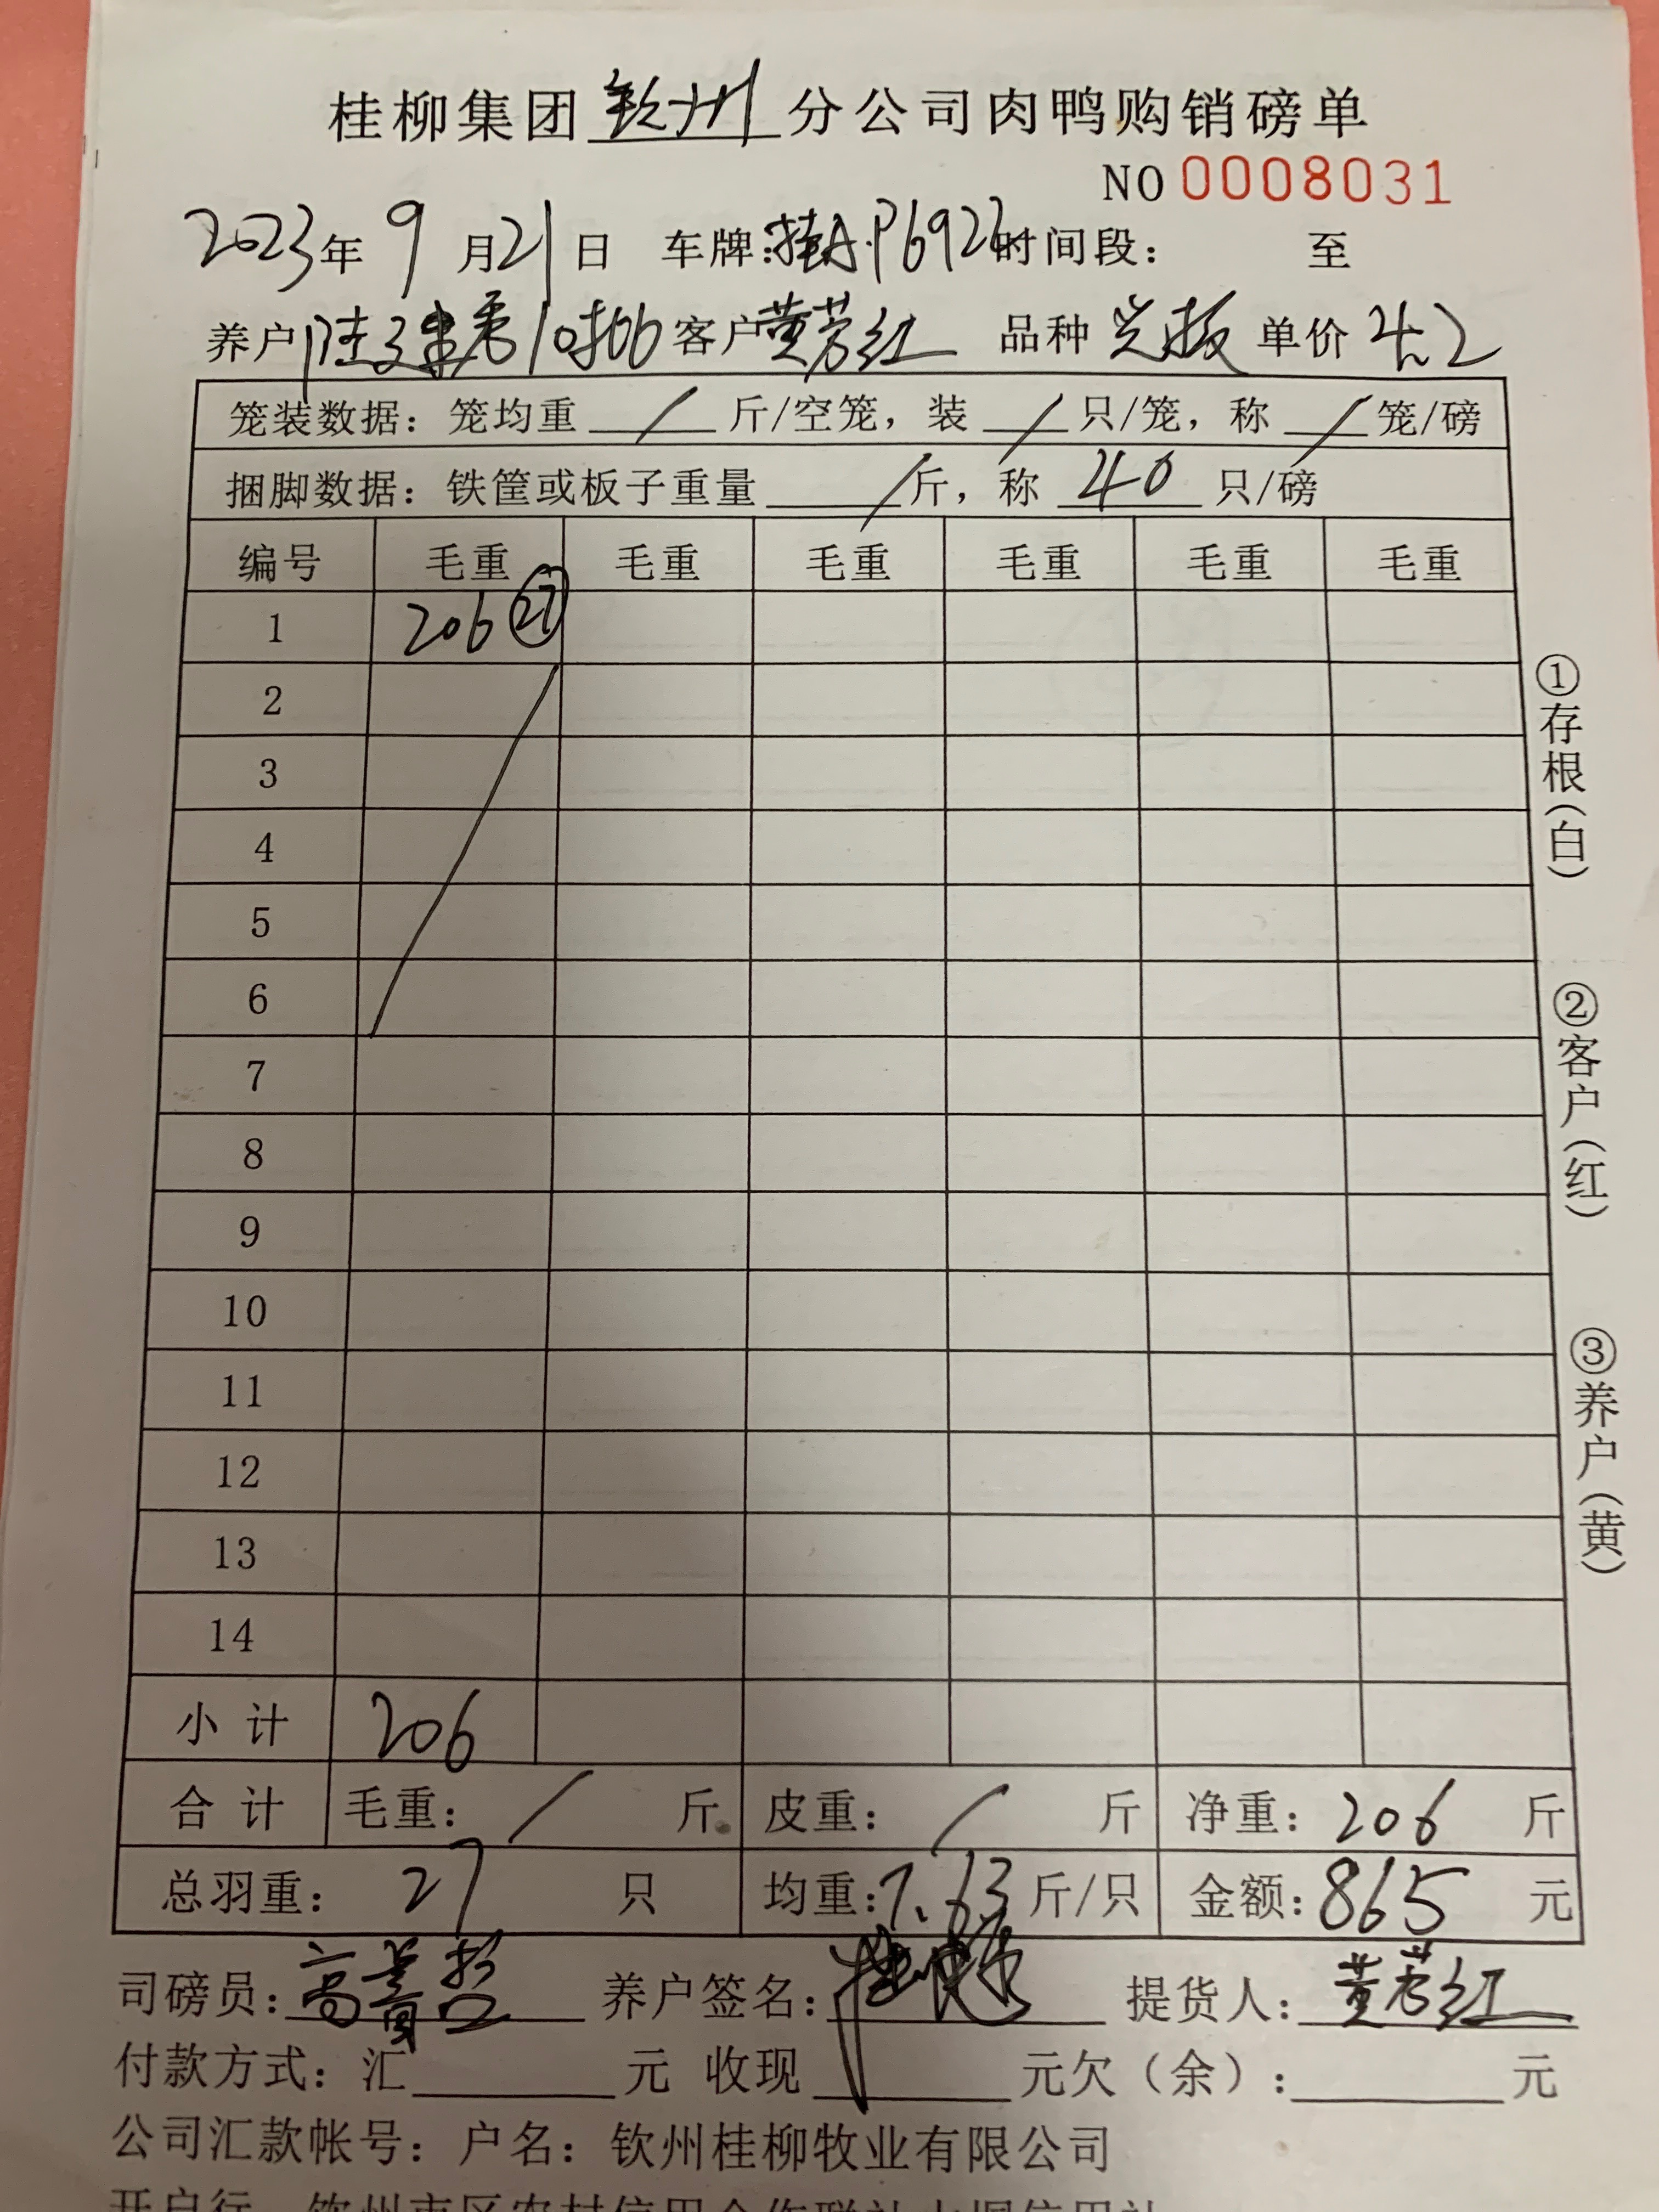 桂柳集团钦州分公司肉鸭购销磅单
NO 0008031
2023年9月21日 车牌:桂A·P6923时间段: 至
养户陆建秀10批 客户黄芳红 品种 单价 4.2
笼装数据:笼均重 / 斤/空笼,装 / 只/笼,称 / 笼/磅
捆脚数据:铁筐或板子重量 / 斤,称 40 只/磅
编号 毛重 毛重 毛重 毛重 毛重 毛重
1 206 ㉗
2
3
4
5
6
7
8
9
10
11
12
13
14
小计 206
合计 毛重: / 斤 皮重: / 斤 净重: 206 斤
总羽重: 27 只 均重:7.63斤/只 金额:865 元
司磅员: 养户签名: 提货人:黄芳红
付款方式:汇 元 收现 元欠(余): 元
公司汇款帐号:户名:钦州桂柳牧业有限公司
①存根(白)
②客户(红)
③养户(黄)